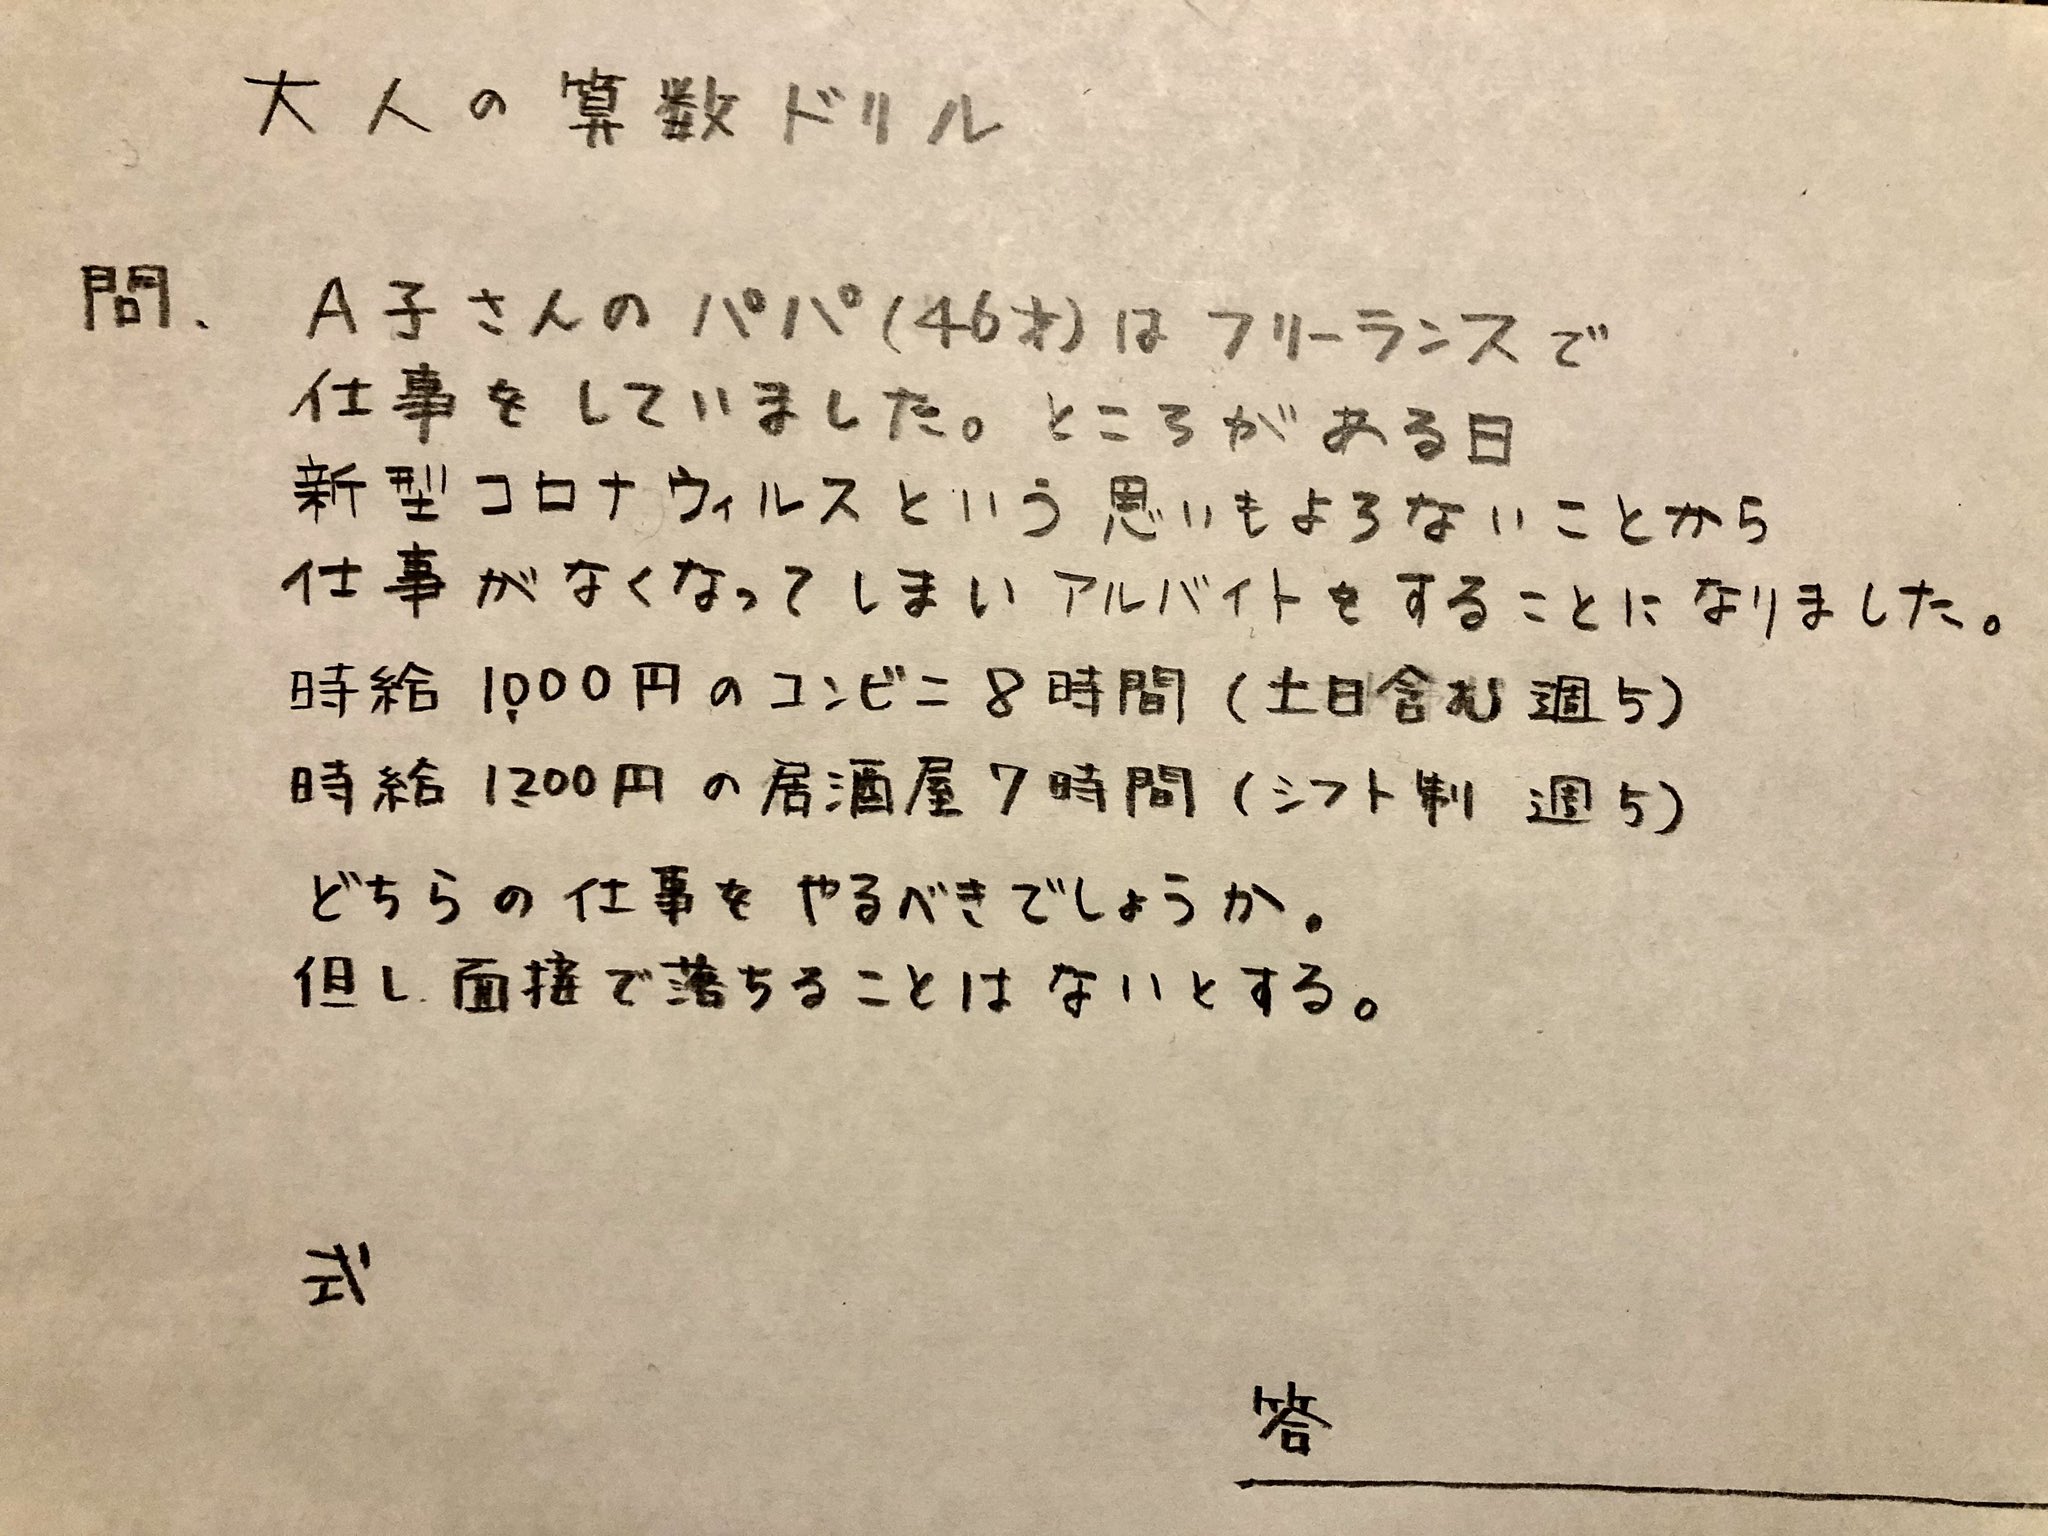 大人の算数ドリル
問、A子さんのパパ(46才)はフリーランスで
仕事をしていました。ところがある日
新型コロナウィルスという思いもよろないことから
仕事がなくなってしまいアルバイトをすることになりました。
時給1,000円のコンビニ8時間(土日含む週5)
時給1200円の居酒屋7時間(シフト制 週5)
どちらの仕事をやるべきでしょうか。
但し面接で落ちることはないとする。
式
答